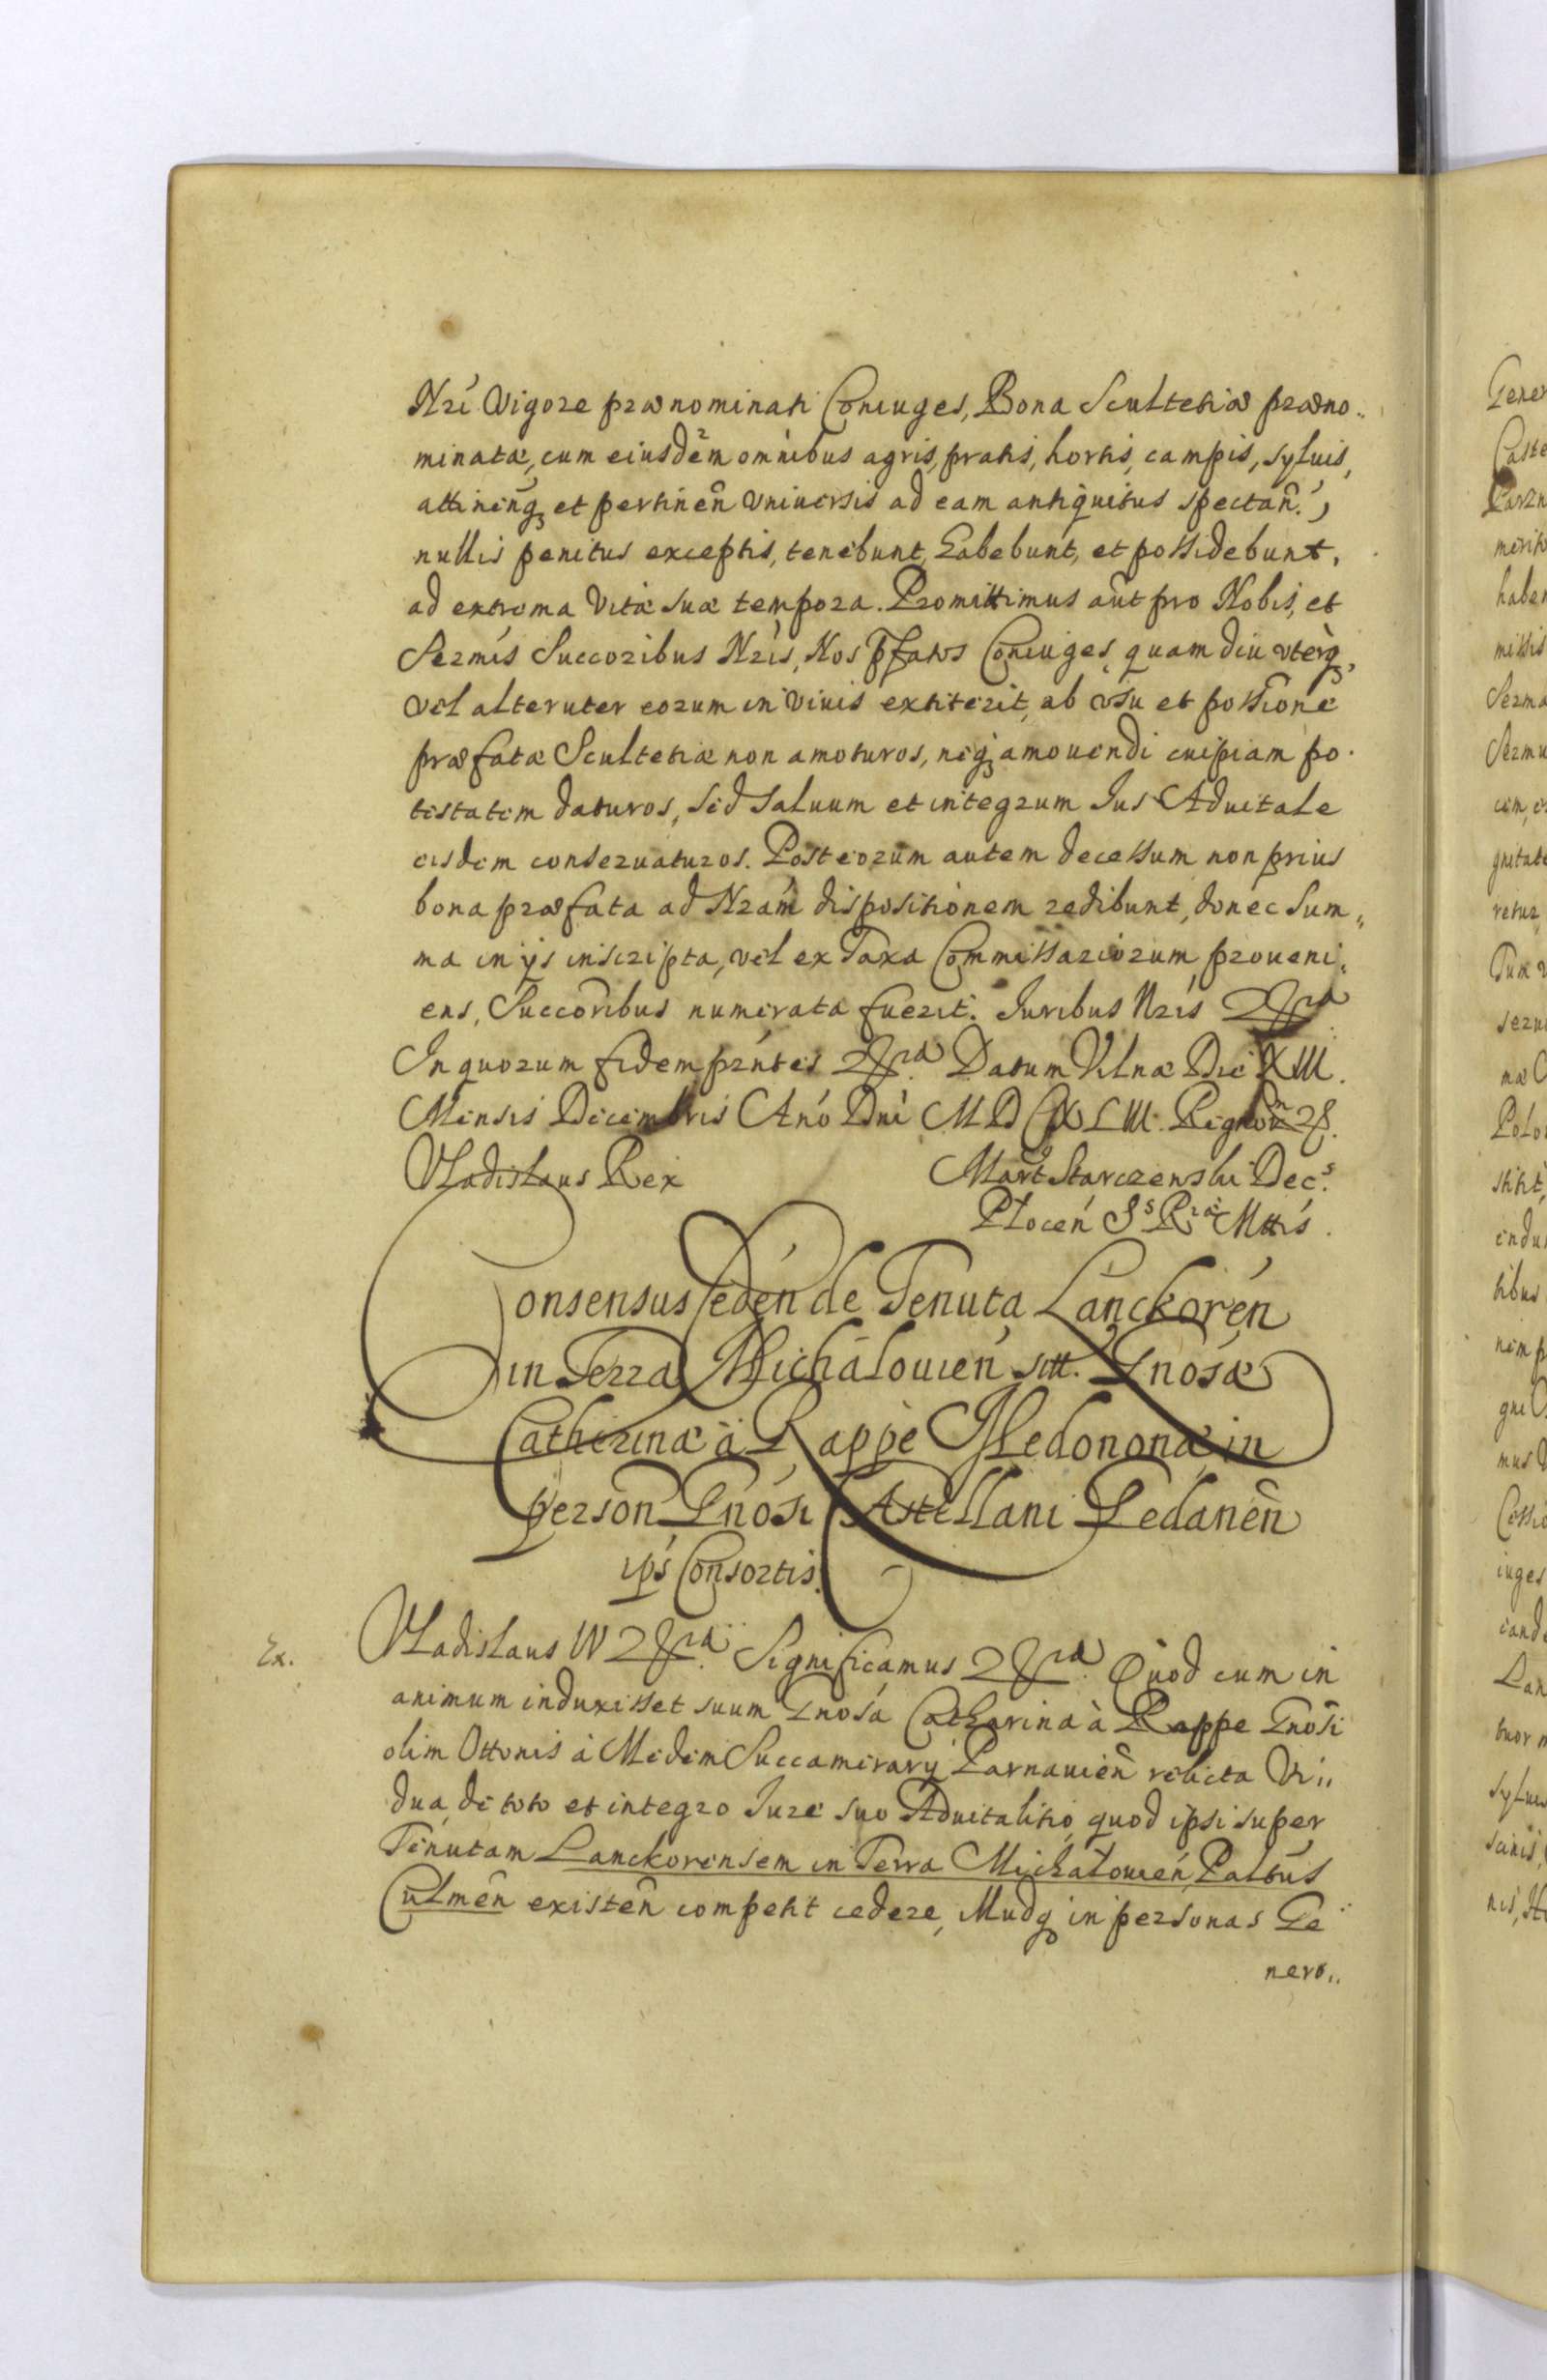 Nri Vigore prænominati Coniuges, Bona Scultetiæ præno„
minatæ, cum eiusdem omnibus agris, pratis, hortis, campis, syluis,
attinenq; et pertinen Vniuersis ad eam antiquitus spectan.,
nullis penitus exceptis, tenebunt, habebunt, et possidebunt,
ad extrema Vitæ suæ tempora. Promittimus aut pro Nobis, et
Sermis Succoribus Nris, Nos Pfatos Coniuges, quam diu vterq;
vel alteruter eorum in viuis extiterit, ab vsu et possione
præfatæ Scultetiæ non amoturos, neq; amouendi cuipiam po„
testatem daturos, sed saluum et integrum Ius Aduitale
eisdem conseruaturos. Post eorum autem decessum non prius
bona præfata ad Nram dispositionem redibunt, donec Sum„
ma in ijs inscripta, vel ex Taxa Commissariorum proueni„
ens, Succoribus numerata fuerit. Iuribus Nris
In quorum fidem prntes Datum Vilnæ Die XIII.
Mensis Decembris Ano Dni
Vladislaus Rex Mart Starczenski Dec.s
Plocen Ss Riæ Mttis.
Consensus Ceden de Tenuta Lanckoren
in Terra Michalouien sitt. Gnosæ
Catherinæ à Rappe Medononæ in
person Gnosi Castellani Gedanen
ips Consortis.
Ex. Vladislaus IV Significamus Quod cum in
animum induxisset suum Gnosa Catharina à Rappe Gnosi
olim Ottonis à Medem Succamerarij Parnauien relicta Vi„
dua de toto et integro Iure suo Aduitalitio, quod ipsi super
Tenutam Lanckorensem in Terra Michalouien, Paltus
Culmen existen competit cedere, Mudq; in personas Ge„
nero„
Gener
Caste
Parzn
merit
haber
missis
Serma
Sermu
gnitate
retur
Tuæ
seru
mæ
Polo
stitit,
indu
tibus
nem
gni
mus
Cessio
iuges
eand
Lan
tuor
syluis
scinis,
nis,